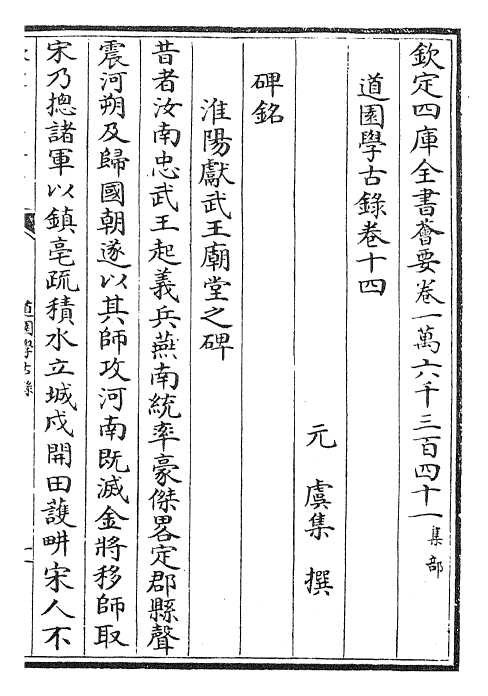 欽定四庫全書薈要卷一萬六千三百四十一 集部
道園學古錄卷十四
元 虞集 撰
碑銘
淮陽獻武王廟堂之碑
昔者汝南忠武王起義兵燕南統率豪傑畧定郡縣聲
震河朔及歸國朝遂以其師攻河南既滅金將移師取
宋乃摠諸軍以鎮亳疏積水立城戍開田護畊宋人不
道園學古錄